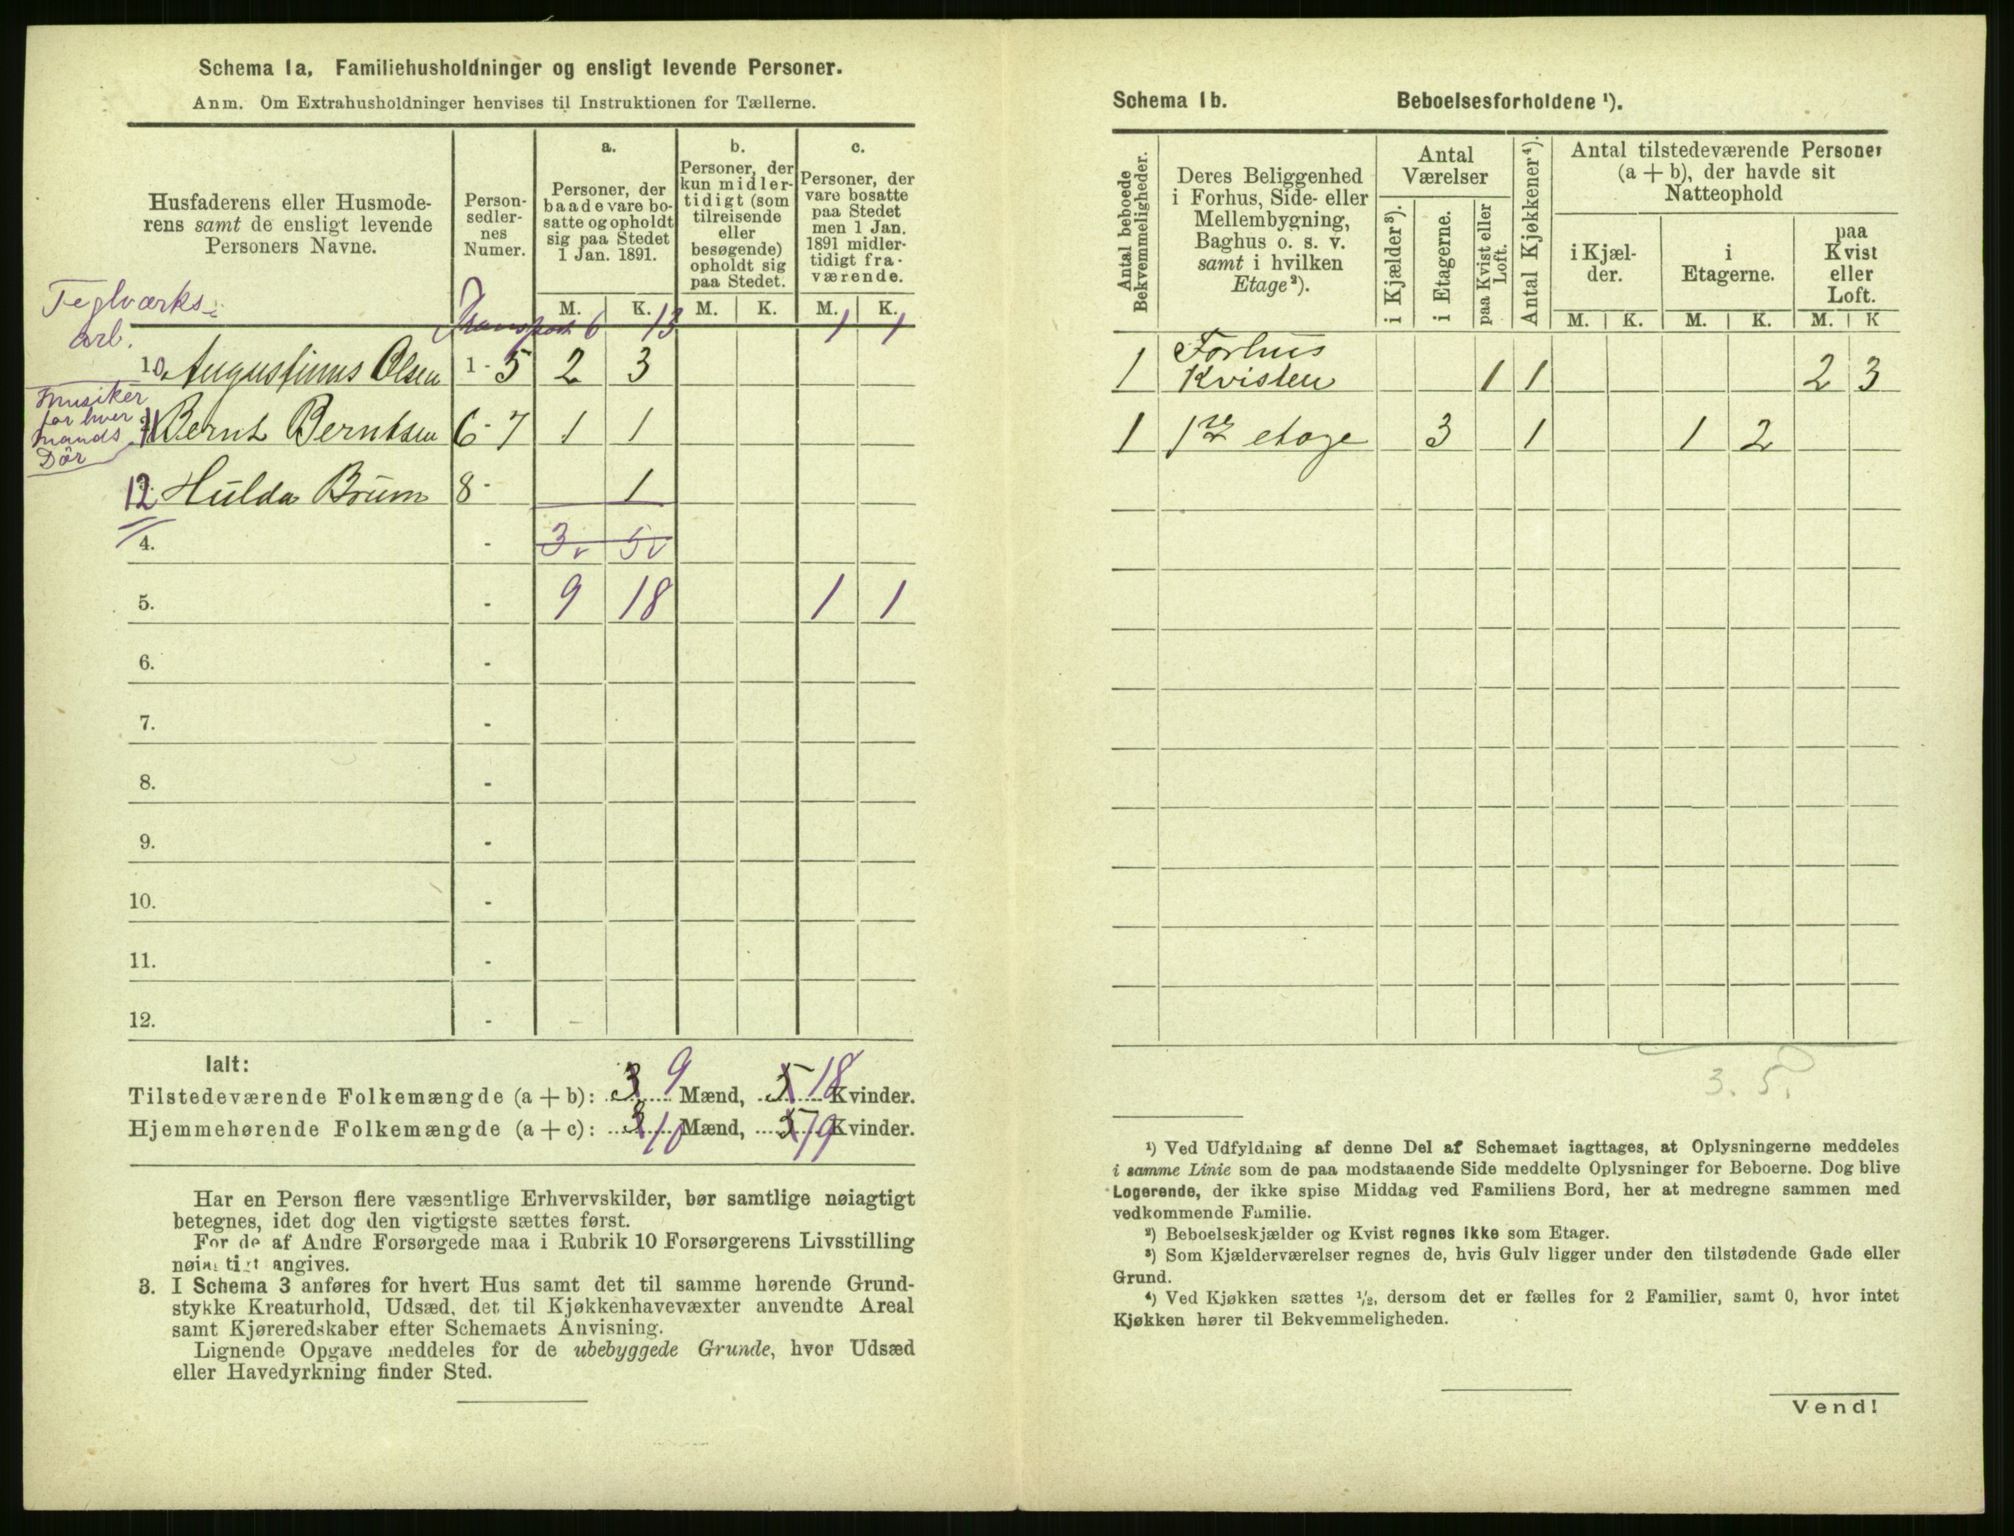 Schema 1a, Familiehusholdninger og ensligt levende Personer.
Anm. Om Extrahusholdninger henvises til Instruktionen for Tællerne.
Husfaderens eller Husmode-
rens samt de ensligt levende
Personers Navne.
Person-
sedler-
nes
Numer.
a.
Personer, der
baade vare bo-
satte og opholdt
sig paa Stedet
1 Jan. 1891.
b.
Personer, der
kun midler-
tidigt (som
tilreisende
eller
besøgende)
opholdt sig
paa Stedet.
c.
Personer, der
vare bosatte
paa Stedet
men 1 Jan.
1891 midler-
tidigt fra-
værende.
M. K. M. K. M. K.
Teglværks-
arb.
Transport 6 13 1 1
10. Augustinus Olsen 1 - 5 2 3
Musiker
for hver
Mands
Dör
11 Bernt Berntsen 6 - 7 1 1
12 Hulda Brum 8 - 1
4. - 3 5
5. - 9 18 1 1
6. -
7. -
8. -
9. -
10. -
11. -
12. - -
Ialt:
Tilstedeværende Folkemængde (a + b): 3 9 Mænd, 5 18 Kvinder.
Hjemmehørende Folkemængde (a + c): 3 10 Mænd, 5 19 Kvinder.
Har en Person flere væsentlige Erhvervskilder, bør samtlige nøiagtigt
betegnes, idet dog den vigtigste sættes først.
For de af Andre Forsørgede maa i Rubrik 10 Forsørgerens Livsstilling
nøiagtigt angives.
3. I Schema 3 anføres for hvert Hus samt det til samme hørende Grund-
stykke Kreaturhold, Udsæd, det til Kjøkkenhavevæxter anvendte Areal
samt Kjøreredskaber efter Schemaets Anvisning.
Lignende Opgave meddeles for de ubebyggede Grunde, hvor Udsæd
eller Havedyrkning finder Sted.
Schema 1b. Beboelsesforholdene ¹).
Antal beboede
Bekvemmeligheder.
Deres Beliggenhed
i Forhus, Side- eller
Mellembygning,
Baghus o. s. v.
samt i hvilken
Etage²).
Antal
Værelser
i Kjælder³).
i Etagerne.
paa Kvist eller
Loft.
Antal Kjøkkener⁴).
Antal tilstedeværende Personer
(a + b), der havde sit
Natteophold
i Kjæl-
der.
i
Etagerne.
paa
Kvist
eller
Loft.
M. K. M. K. M. K
1 Forhus
Kvisten 1 1 2 3
1 1ste etage 3 1 1 2
3. 5.
¹) Ved Udfyldning af denne Del af Schemaet iagttages, at Oplysningerne meddeles
i samme Linie som de paa modstaaende Side meddelte Oplysninger for Beboerne. Dog blive
Logerende, der ikke spise Middag ved Familiens Bord, her at medregne sammen med
vedkommende Familie.
²) Beboelseskjælder og Kvist regnes ikke som Etager.
³) Som Kjælderværelser regnes de, hvis Gulv ligger under den tilstødende Gade eller
Grund.
⁴) Ved Kjøkken sættes ½, dersom det er fælles for 2 Familier, samt 0, hvor intet
Kjøkken hører til Bekvemmeligheden.
Vend!